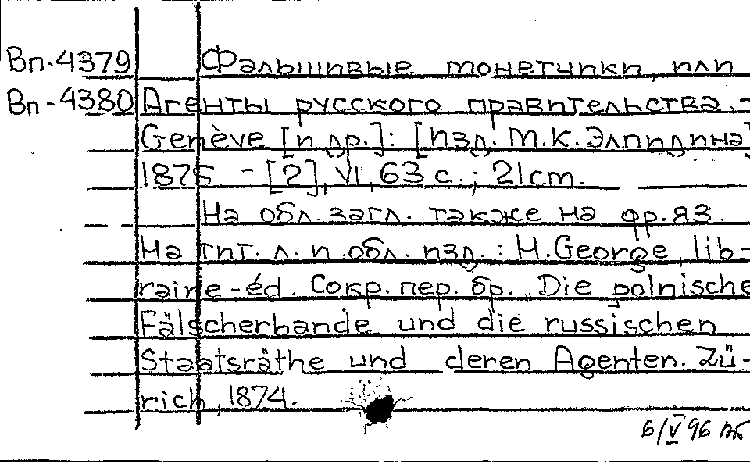 Вп-4379 Фальшивые монетчики, или
Вп-4380 Агенты русского правительства. -
Genève [и др.]: [изд. М.К. Элпидина]
1875 - [2], VI, 63 с.; 21cm.
На обл. загл. также на фр. яз.
На тит. л. и обл. изд.: H. George, lib-
raire-éd. Сокр. пер. бр. Die polnische
Fälscherbande und die russischen
Staatsräthe und deren Agenten. Zü-
rich, 1874.
6/V 96